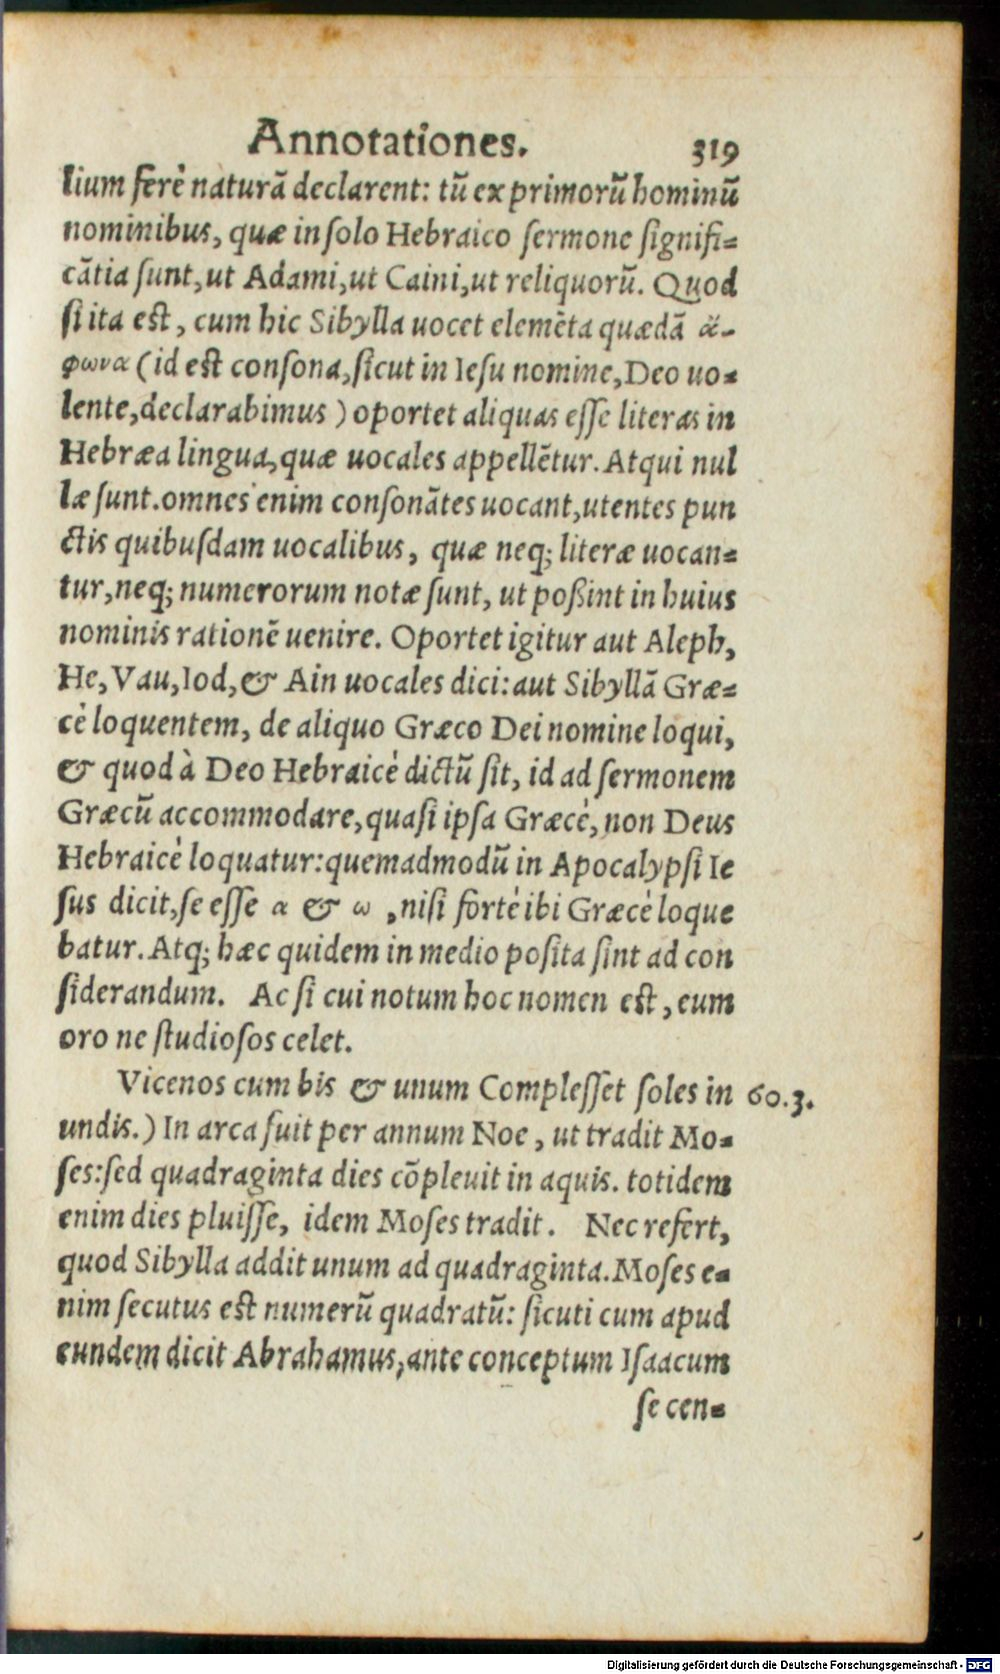 Annotationes. 319
lium ferè naturā declarent: tū ex primorū hominū
nominibus, quæ in solo Hebraico sermone signifi=
cātia sunt, ut Adami, ut Caini, ut reliquorū. Quod
si ita est, cum hic Sibylla uocet elemēta quædā ἄ-
φωνα (id est consona, sicut in Iesu nomine, Deo uo=
lente, declarabimus) oportet aliquas esse literas in
Hebræa lingua, quæ uocales appellētur. Atqui nul
læ sunt. omnes enim consonātes uocant, utentes pun
ctis quibusdam uocalibus, quæ neq; literæ uocan=
tur, neq; numerorum notæ sunt, ut poßint in huius
nominis rationē uenire. Oportet igitur aut Aleph,
He, Vau, Iod, & Ain uocales dici: aut Sibyllā Græ=
cè loquentem, de aliquo Græco Dei nomine loqui,
& quod à Deo Hebraicè dictū sit, id ad sermonem
Græcū accommodare, quasi ipsa Græcè, non Deus
Hebraicè loquatur: quemadmodū in Apocalypsi Ie
sus dicit, se esse α & ω, nisi fortè ibi Græcè loque
batur. Atq; hæc quidem in medio posita sint ad con
siderandum. Ac si cui notum hoc nomen est, eum
oro ne studiosos celet.
Vicenos cum bis & unum Complesset soles in 60.3.
undis.) In arca fuit per annum Noe, ut tradit Mo=
ses: sed quadraginta dies cōpleuit in aquis. totidem
enim dies pluisse, idem Moses tradit. Nec refert,
quod Sibylla addit unum ad quadraginta. Moses e=
nim secutus est numerū quadratū: sicuti cum apud
eundem dicit Abrahamus, ante conceptum Isaacum
se cen=
Digitalisierung gefördert durch die Deutsche Forschungsgemeinschaft - DFG